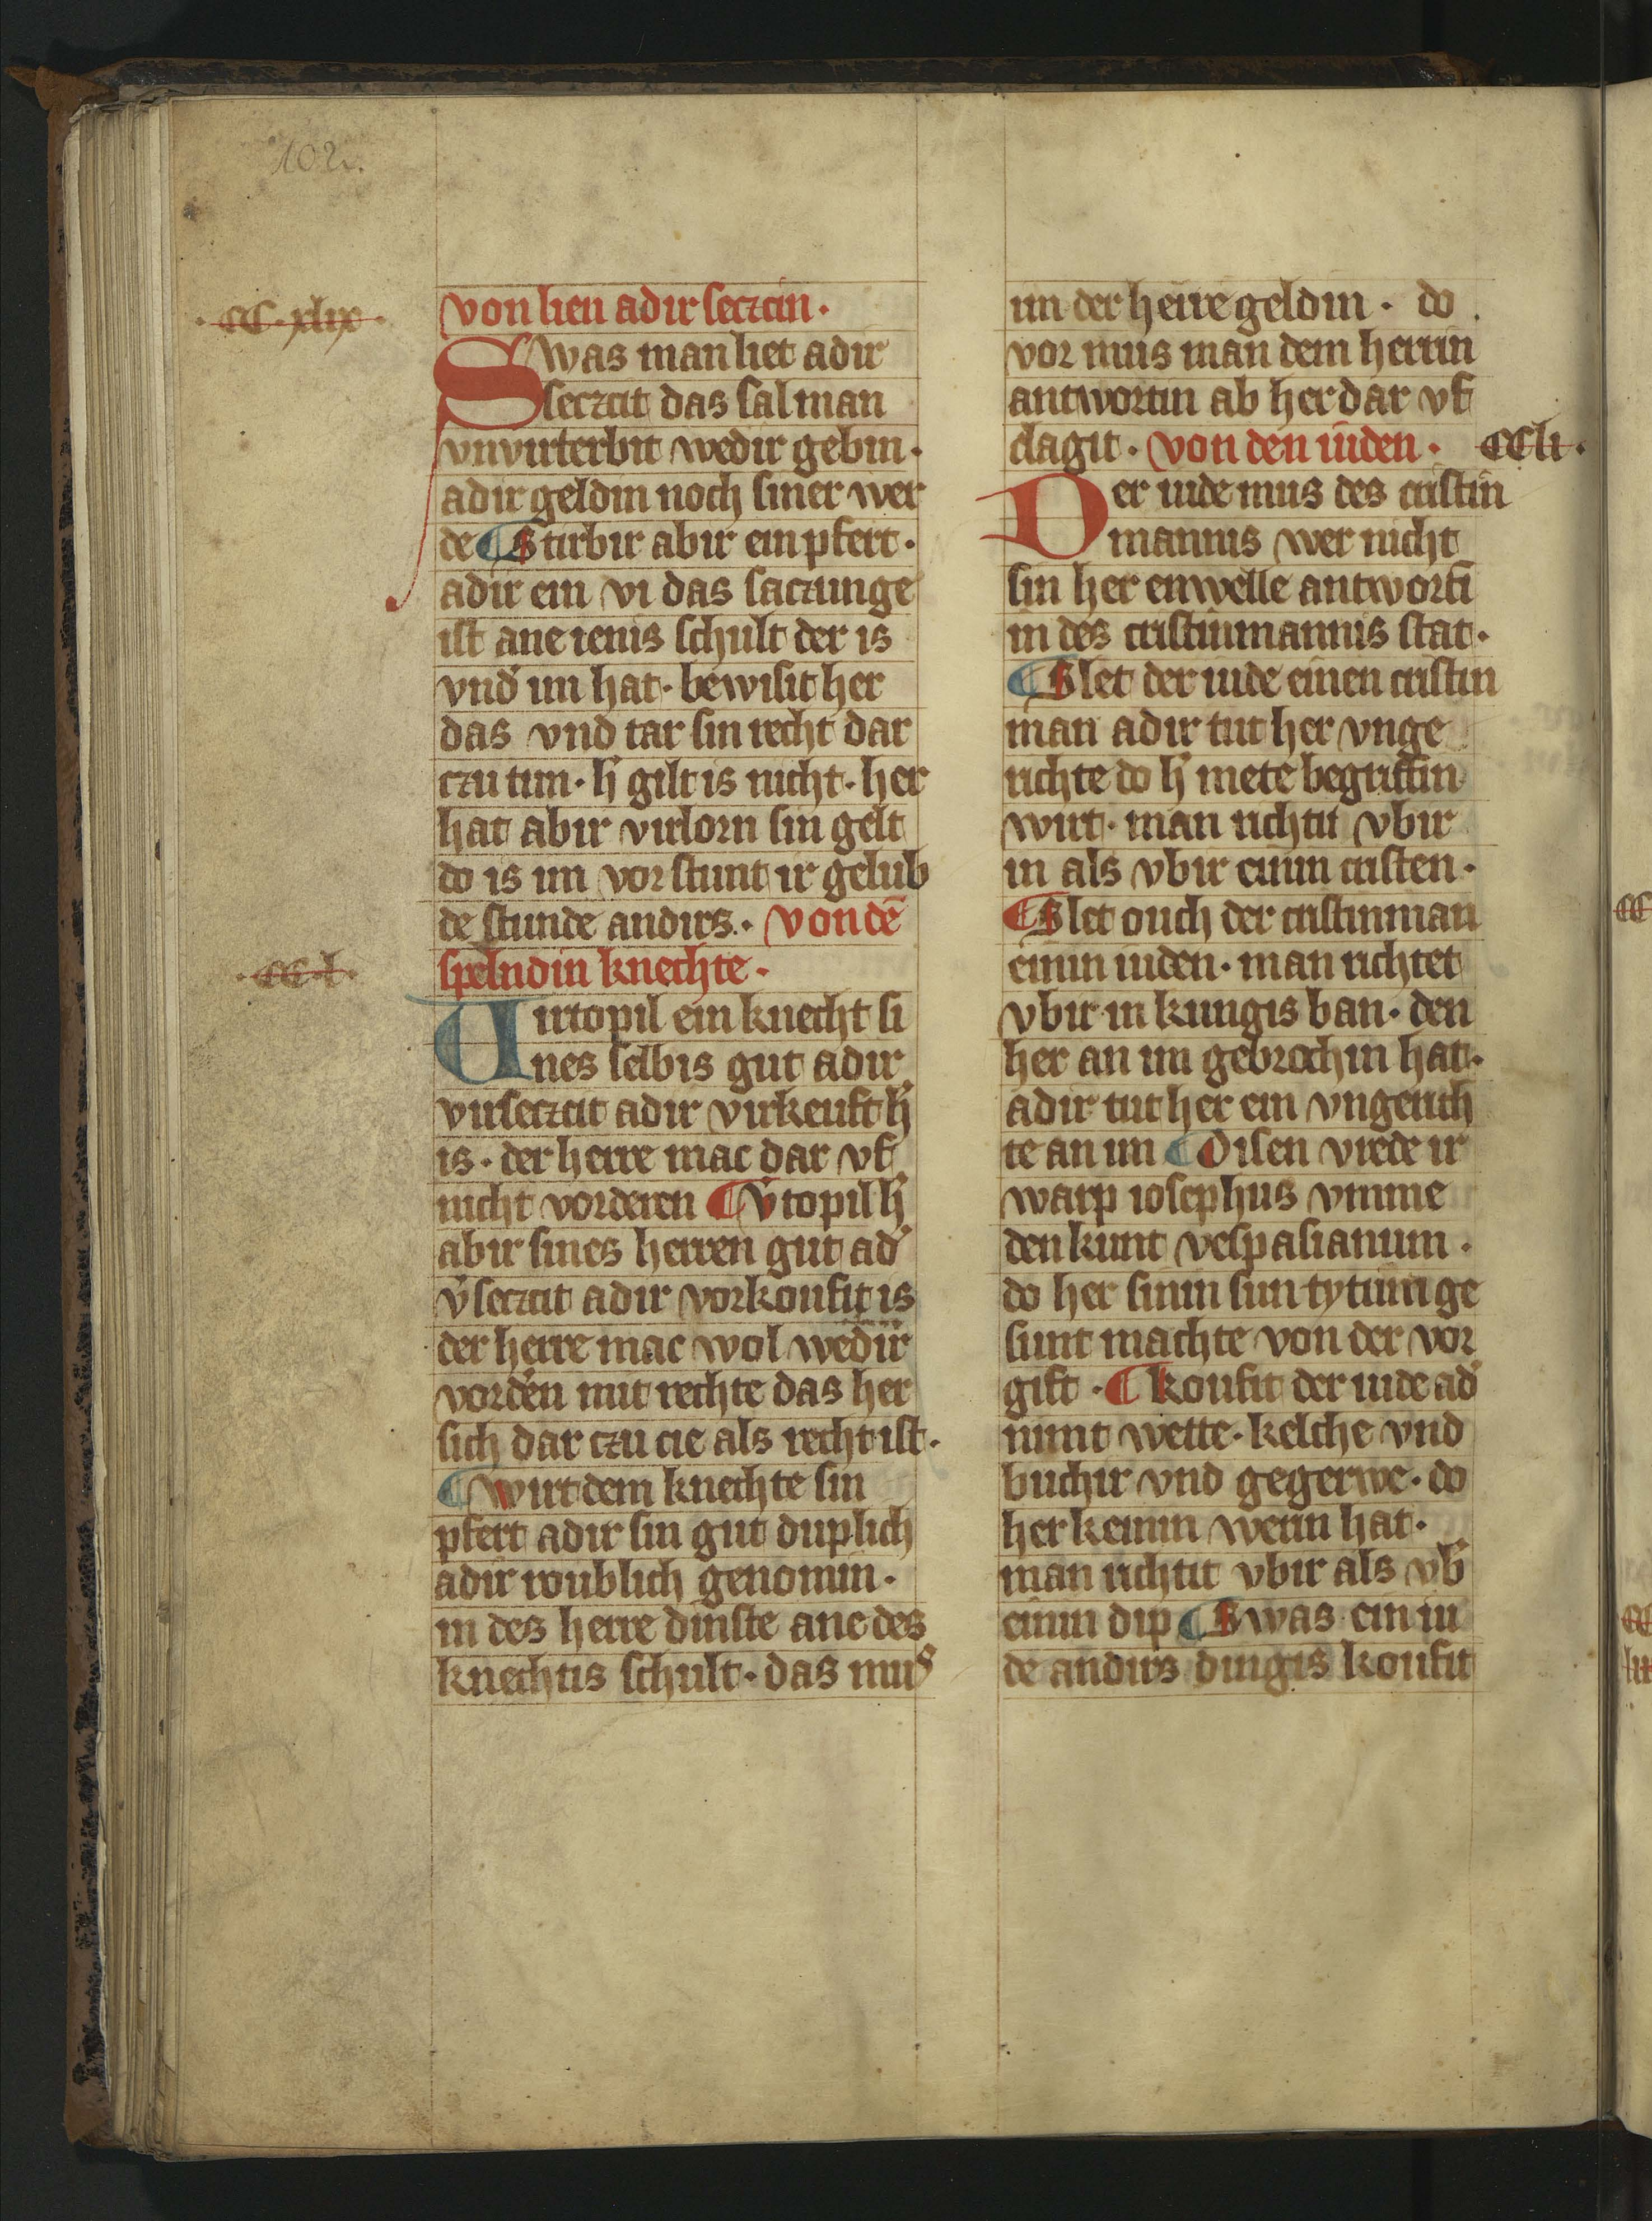 102.
·CC·xlix·
von lien adir seczcin·
Swas man liet adir
seczcit das sal man
vnvirterbit wedir gebin·
adir geldin noch siner wer
de ¶ Stirbir abir ein pfert·
adir ein vi das saczunge
ist ane ienis schult der is
vnd̛ im hat· bewisit her
das vnd tar sin recht dar
czu tun· h̛ gilt is nicht· her
hat abir virlorn sin gelt
do is im vor stunt ir gelub
de stunde andirs· von dē
·CC·l·
spelndin knechte·
Virtopil ein knecht si
nes selbis gut adir
virseczcit adir virkeuft h̛
is· der herre mac dar vf
nicht vorderen ¶ v̛topil h̛
abir sines herren gut ad̛
v̛seczcit adir vorkoufit is
der herre mac wol wedir
vord̛en mit rechte das her
sich dar czu cie als recht ist·
¶ wirt dem knechte sin
pfert adir sin gut duplich
adir roublich genomin·
in des herre dinste ane des
knechtis schult· das mus
im der herre geldin· do
vor mus man dem herrin
antwortin ab her dar vf
clagit· von den iuden· CCli·
Der iude mus des cristin
mannis wer nicht
sin her enwelle antwortī
in des cristinmannis stat·
¶ Slet der iude einen cristin
man adir tut her vnge
richte do h̛ mete begriffin
wirt· man richtit vbir
in als vbir einin cristen·
¶ Slet ouch der cristinman
einin iuden· man richtet
vbir in kungis ban· den
her an im gebrochin hat·
adir tut her ein vngerich
te an im ¶ Disen vrede ir
warp iosephus vmme
den kunt vespasianum·
do her sinin sun tytum ge
sunt machte von der vor
gift· ¶ Koufit der iude ad̛
nimt wette· kelche vnd
buchir vnd gegerwe· do
her keinin werin hat·
man richtit vbir als vb̛
einin dip ¶ Swas ein iu
de andirs dingis koufit